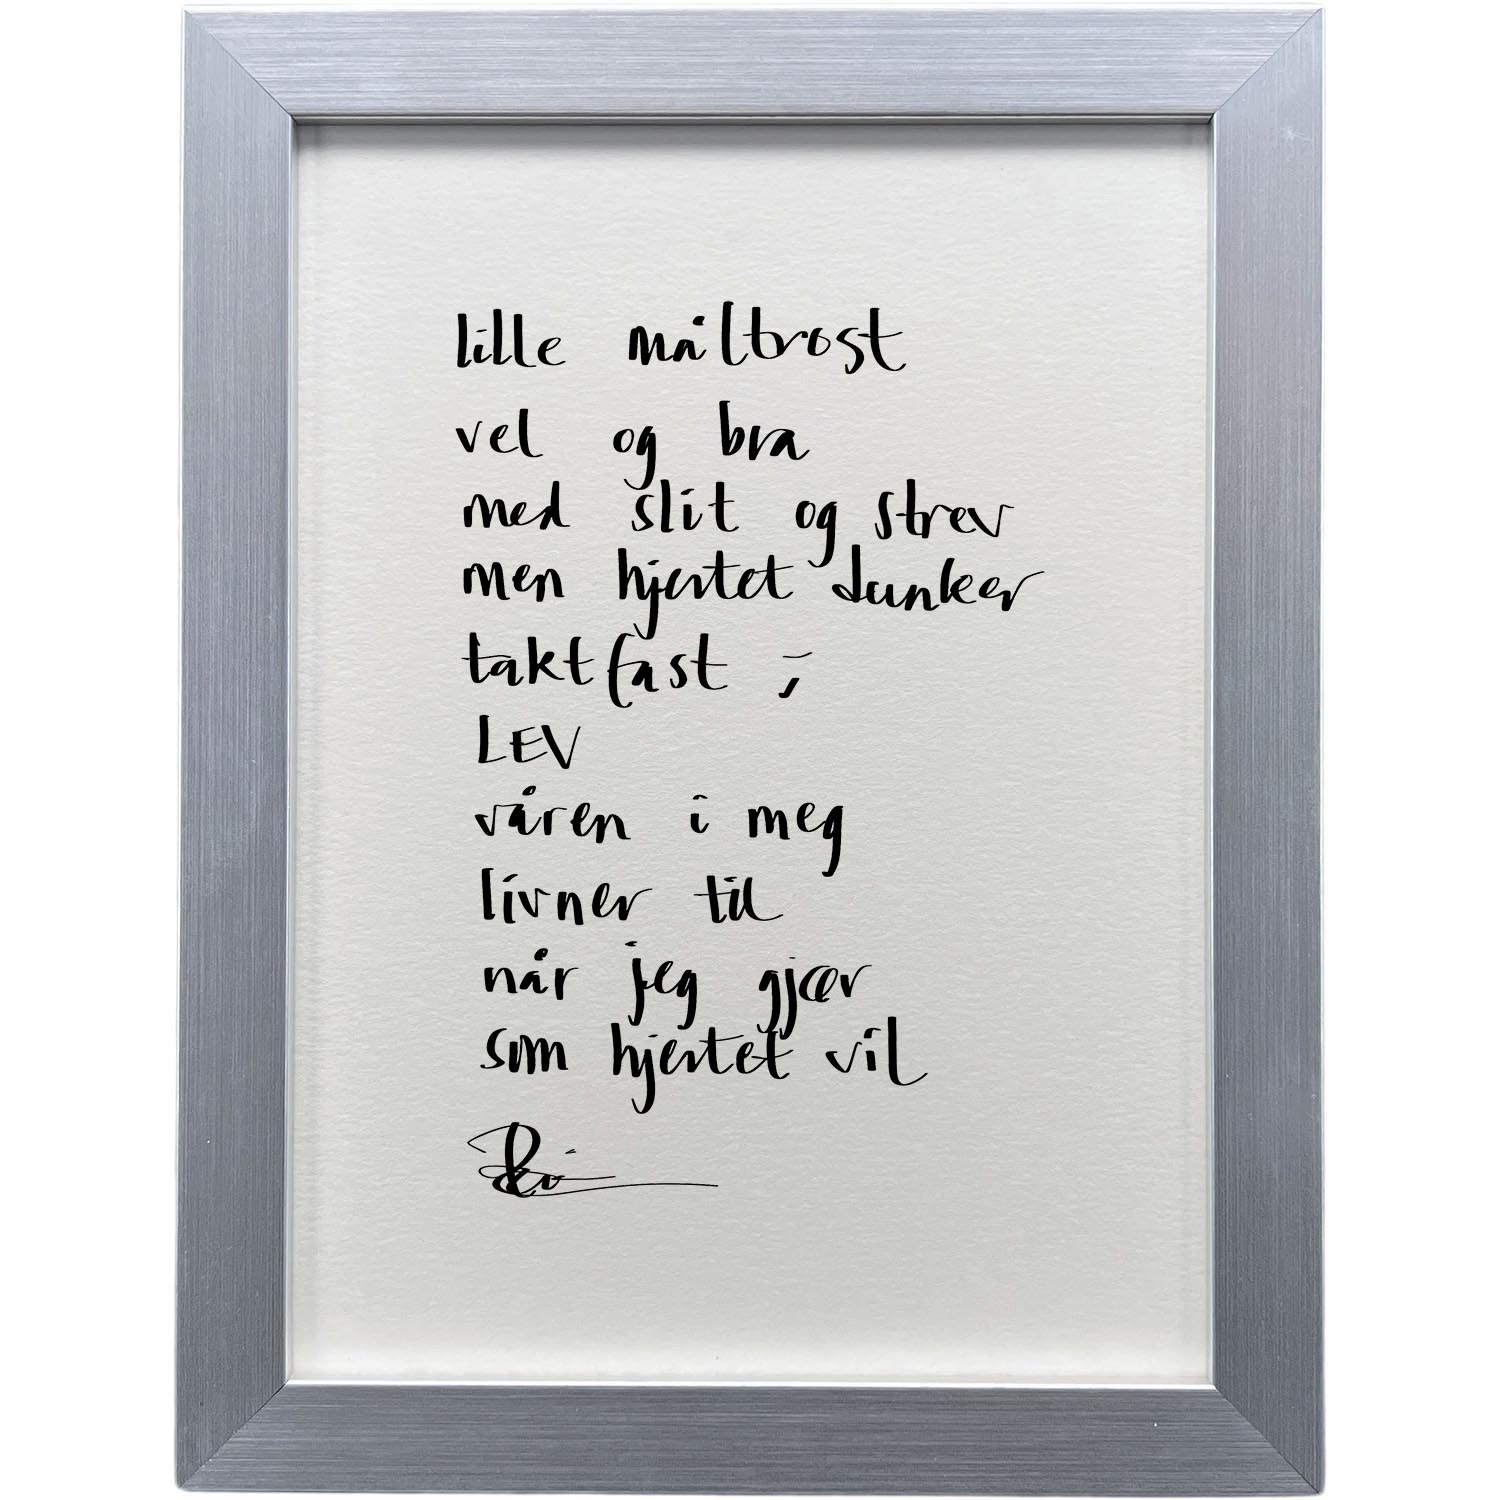 lille måltrost
vel og bra
med slit og strev
men hjertet dunker
taktfast ;
LEV
våren i meg
livner til
når jeg gjør
som hjertet vil